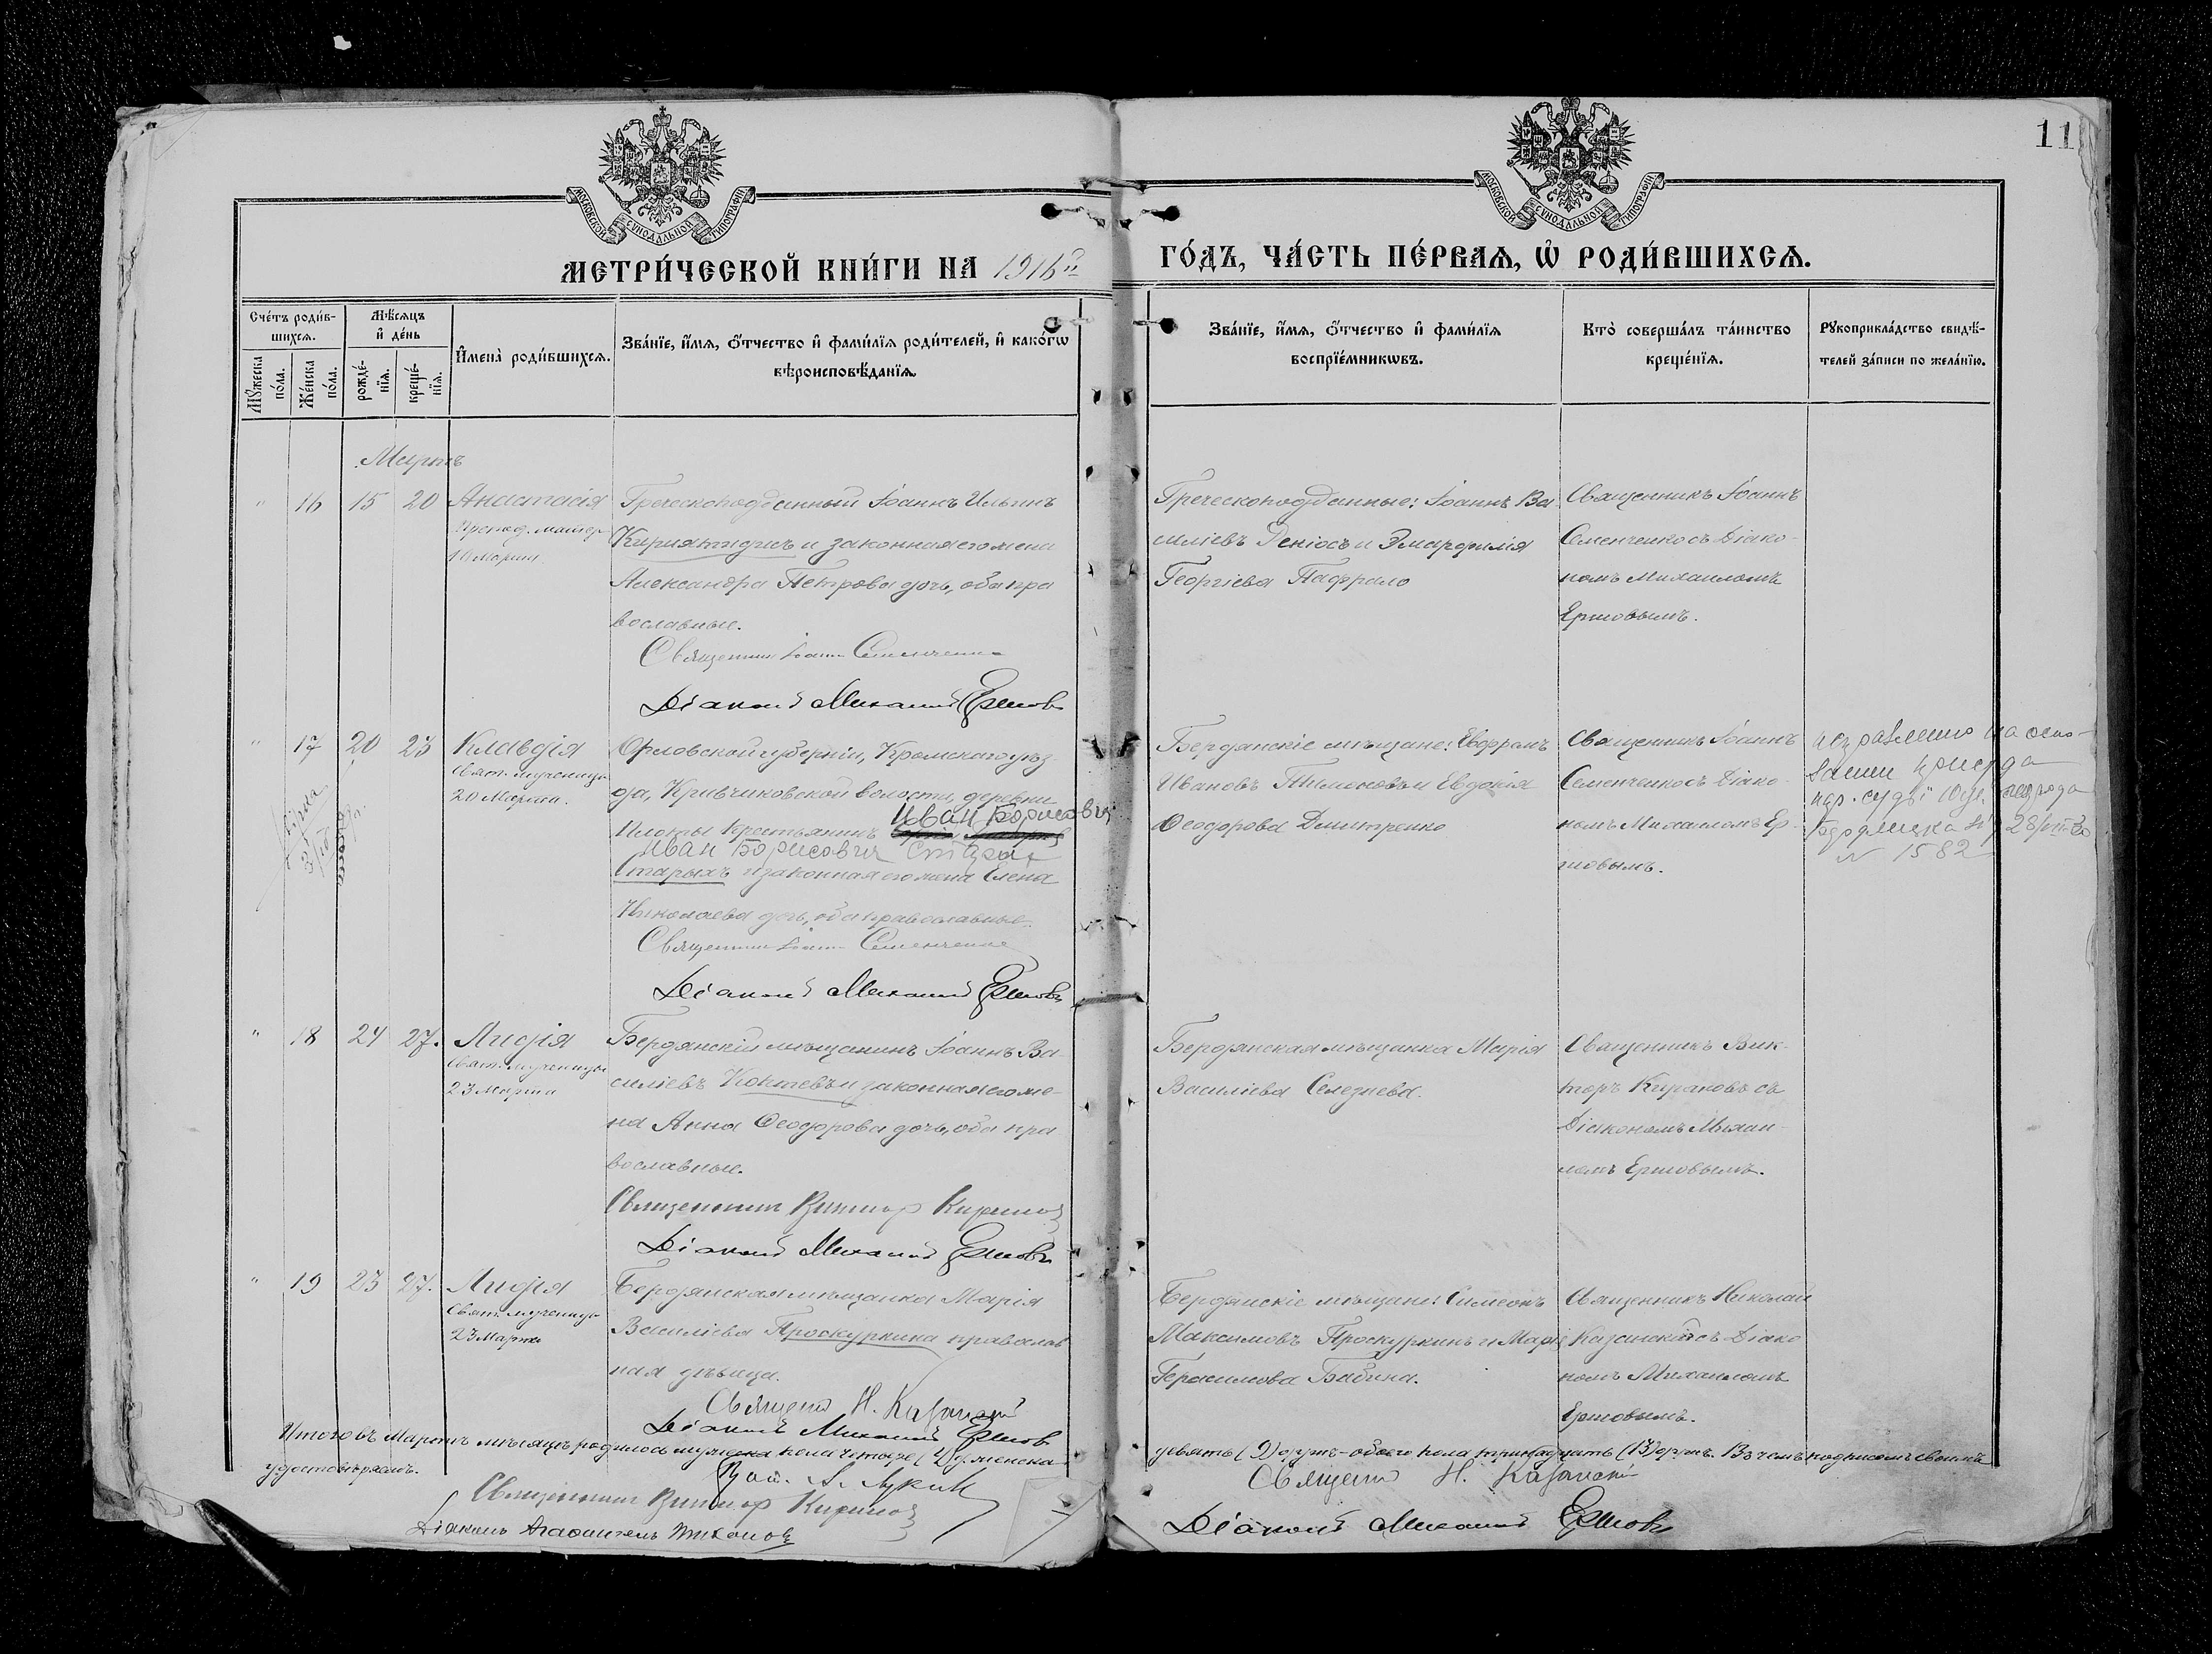 11
МОСКОВСКОЙ СѴНОДАЛЬНОЙ ТИПОГРАФІИ
МОСКОВСКОЙ СѴНОДАЛЬНОЙ ТИПОГРАФІИ
МЕТРИ́ЧЕСКОЙ КНИ́ГИ НА 1916й
ГО́ДЪ, ЧА́СТЬ ПЕ́РВАѦ, Ѡ҆ РОДИ́ВШИХСѦ.
Сче́тъ роди́в-
шихсѧ.
Мꙋ́жеска по́ла.
Же́нска по́ла.
Мѣ́сѧцъ
и҆ де́нь
рожде́-
нїѧ.
креще́-
нїѧ.
И҆мена̀ роди́вшихсѧ.
Зва́нїе, и҆́мѧ, ѻ҆́тчество и҆ фами́лїѧ роди́телей, и҆ како́гѡ
вѣроисповѣ́данїѧ.
Зва́нїе, и҆́мѧ, ѻ҆́тчество и҆ фами́лїѧ
воспрїе́мникѡвъ.
Кто̀ соверша́лъ та́инство
креще́нїѧ.
Рꙋкоприкла́дство свидѣ́-
телей за́писи по жела́нїю.
Мартъ
" 16 15 20 Анастасія
Препод. матер
10 Марта
Греческоподданный Іоаннъ Ильинъ
и законная его жена
Александра Петрова дочь, оба пра
вославные.
Священник Іоанн Семенченко
Діаконъ Михаилъ Ершовъ
Греческоподданные: Іоаннъ Ва
силіевъ и
Георгіева
Священникъ Іоаннъ
Семенченко съ Діако-
номъ Михаиломъ
Ершовымъ.
" 17 20 23 Клавдія
Свят. мученицы
20 Марта.
Орловской губерніи, Кромскаго уѣз
да, Кривчиковской волости, деревни
Плоты Крестьянинъ Иван Борисович
Иван Борисович Старых
Старыхъ и законная его жена Елена
Николаева дочь, оба православные.
Священник Іоанн Семенченко
Діаконъ Михаилъ Ершовъ
Бердянскіе мѣщане: Евфремъ
Ивановъ Тимоновъ и Евдокія
Ѳеодорова Дмитренко
Священникъ Іоаннъ
Семенченко съ Діако-
номъ Михаиломъ Ер-
шовымъ.
исправлено на осно-
вании
нар. судьи 10 уч. города
28/
N 1582
" 18 24 27. Лидія
Свят. мученицы
23 Марта
Бердянскій мѣщанинъ Іоаннъ Ва-
силіевъ Коктевъ и законная его же-
на Анна Ѳеодорова дочь, оба пра
вославные.
Священник Виктор Киранов
Діаконъ Михаилъ Ершовъ
Бердянская мѣщанка Марія
Василіева Селезнева.
Священникъ Вик-
торъ Кирановъ съ
Діакономъ Михаи-
ломъ Ершовымъ.
" 19 23 27. Лидія
Свят. мученицы
23 Марта
Бердянская мѣщанка Марія
Василіева Проскуркина православ
ная дѣвица.
Священ Н. Казанскій
Діаконъ Михаилъ Ершов
Бердянскіе мѣщане: Симеонъ
Максимовъ Проскуркинъ и Марія
Герасимова Бабина.
Священникъ Николай
Казанскій съ Діако
номъ Михаиломъ
Ершовымъ.
Итого въ Мартѣ мѣсяцѣ родилось мужеска пола четыре (4) женска
девять (9) душъ - обоего пола тринадцать (13) душъ. Въ чемъ подписомъ своимъ
удостовѣряемъ.
Священник Виктор Киранов
Діаконъ Агаѳангелъ Тихоновъ
Священ Н. Казанскій
Діаконъ Михаилъ Ершовъ